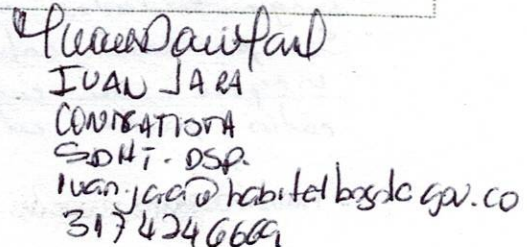 IVAN JARA
CONTRATISTA
SDHT - DSP.
ivan.jara@habitatbogota.gov.co
3174246669